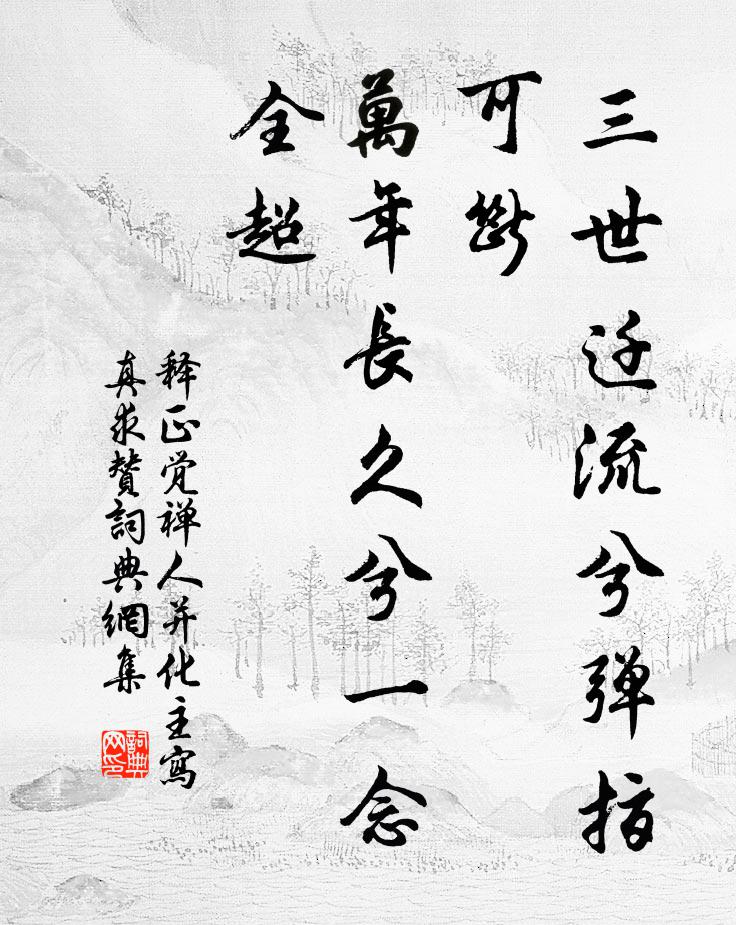 三世迁流兮弹指
可斷
萬年長久兮一念
全超
释正觉禅人并化主寫
真求賛詞典網集
詞典
网印